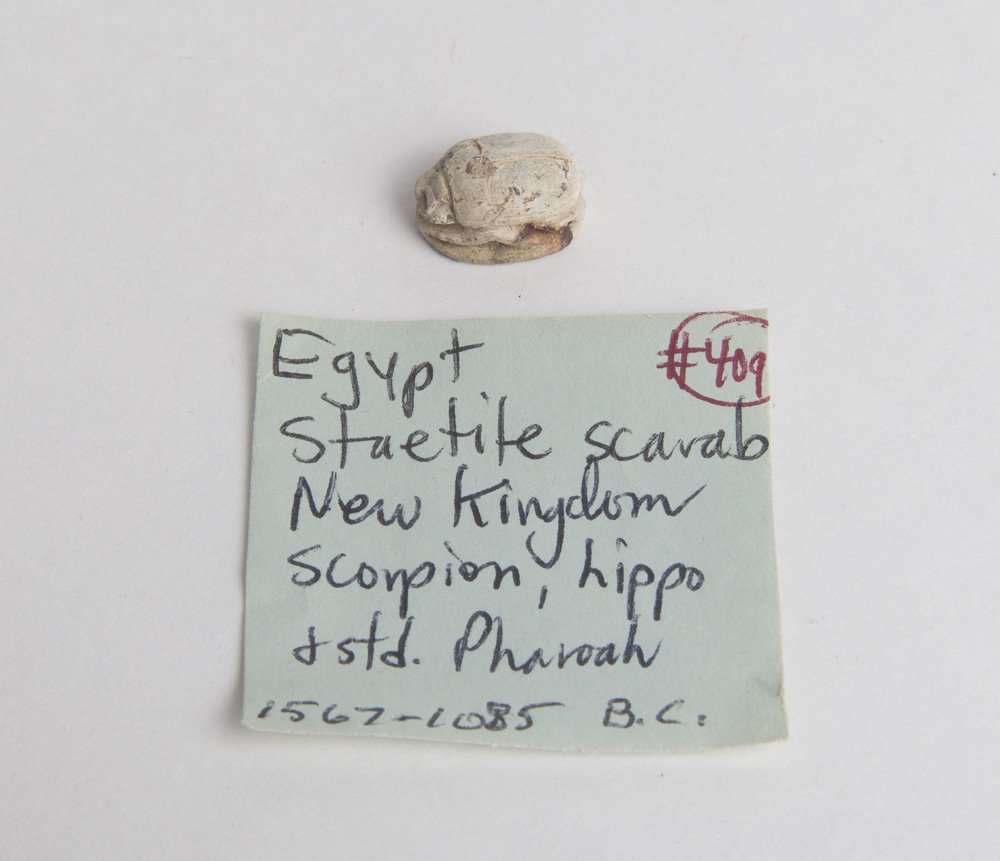 Egypt #409
Staetite scarab
New Kingdom
Scorpion, hippo
& std. Pharoah
1567-1085 B.C.